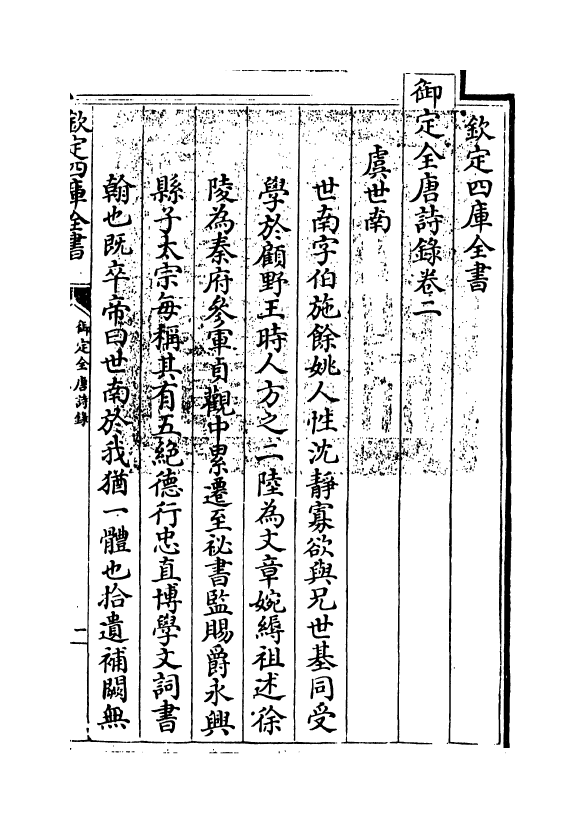 欽定四庫全書
御定全唐詩錄卷二
虞世南
世南字伯施餘姚人性沈靜寡欲與兄世基同受
學於顧野王時人方之二陸為文章婉縟祖述徐
陵為秦府參軍貞觀中累遷至祕書監賜爵永興
縣子太宗每稱其有五絕德行忠直博學文詞書
翰也既卒帝曰世南於我猶一體也拾遺補闕無
欽定四庫全書
御定全唐詩錄
一